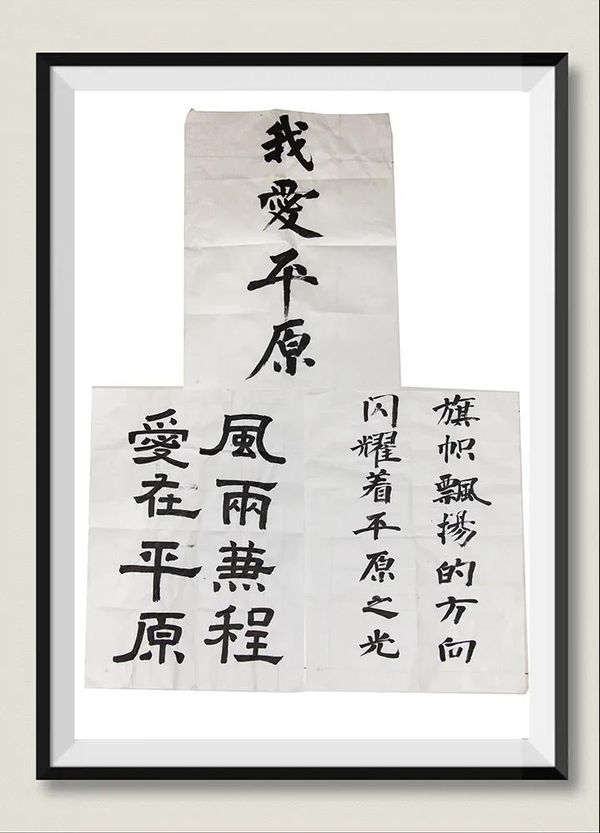 我愛平原
旗帜飄揚的方向
闪耀着平原之光
風雨蒹程
愛在平原